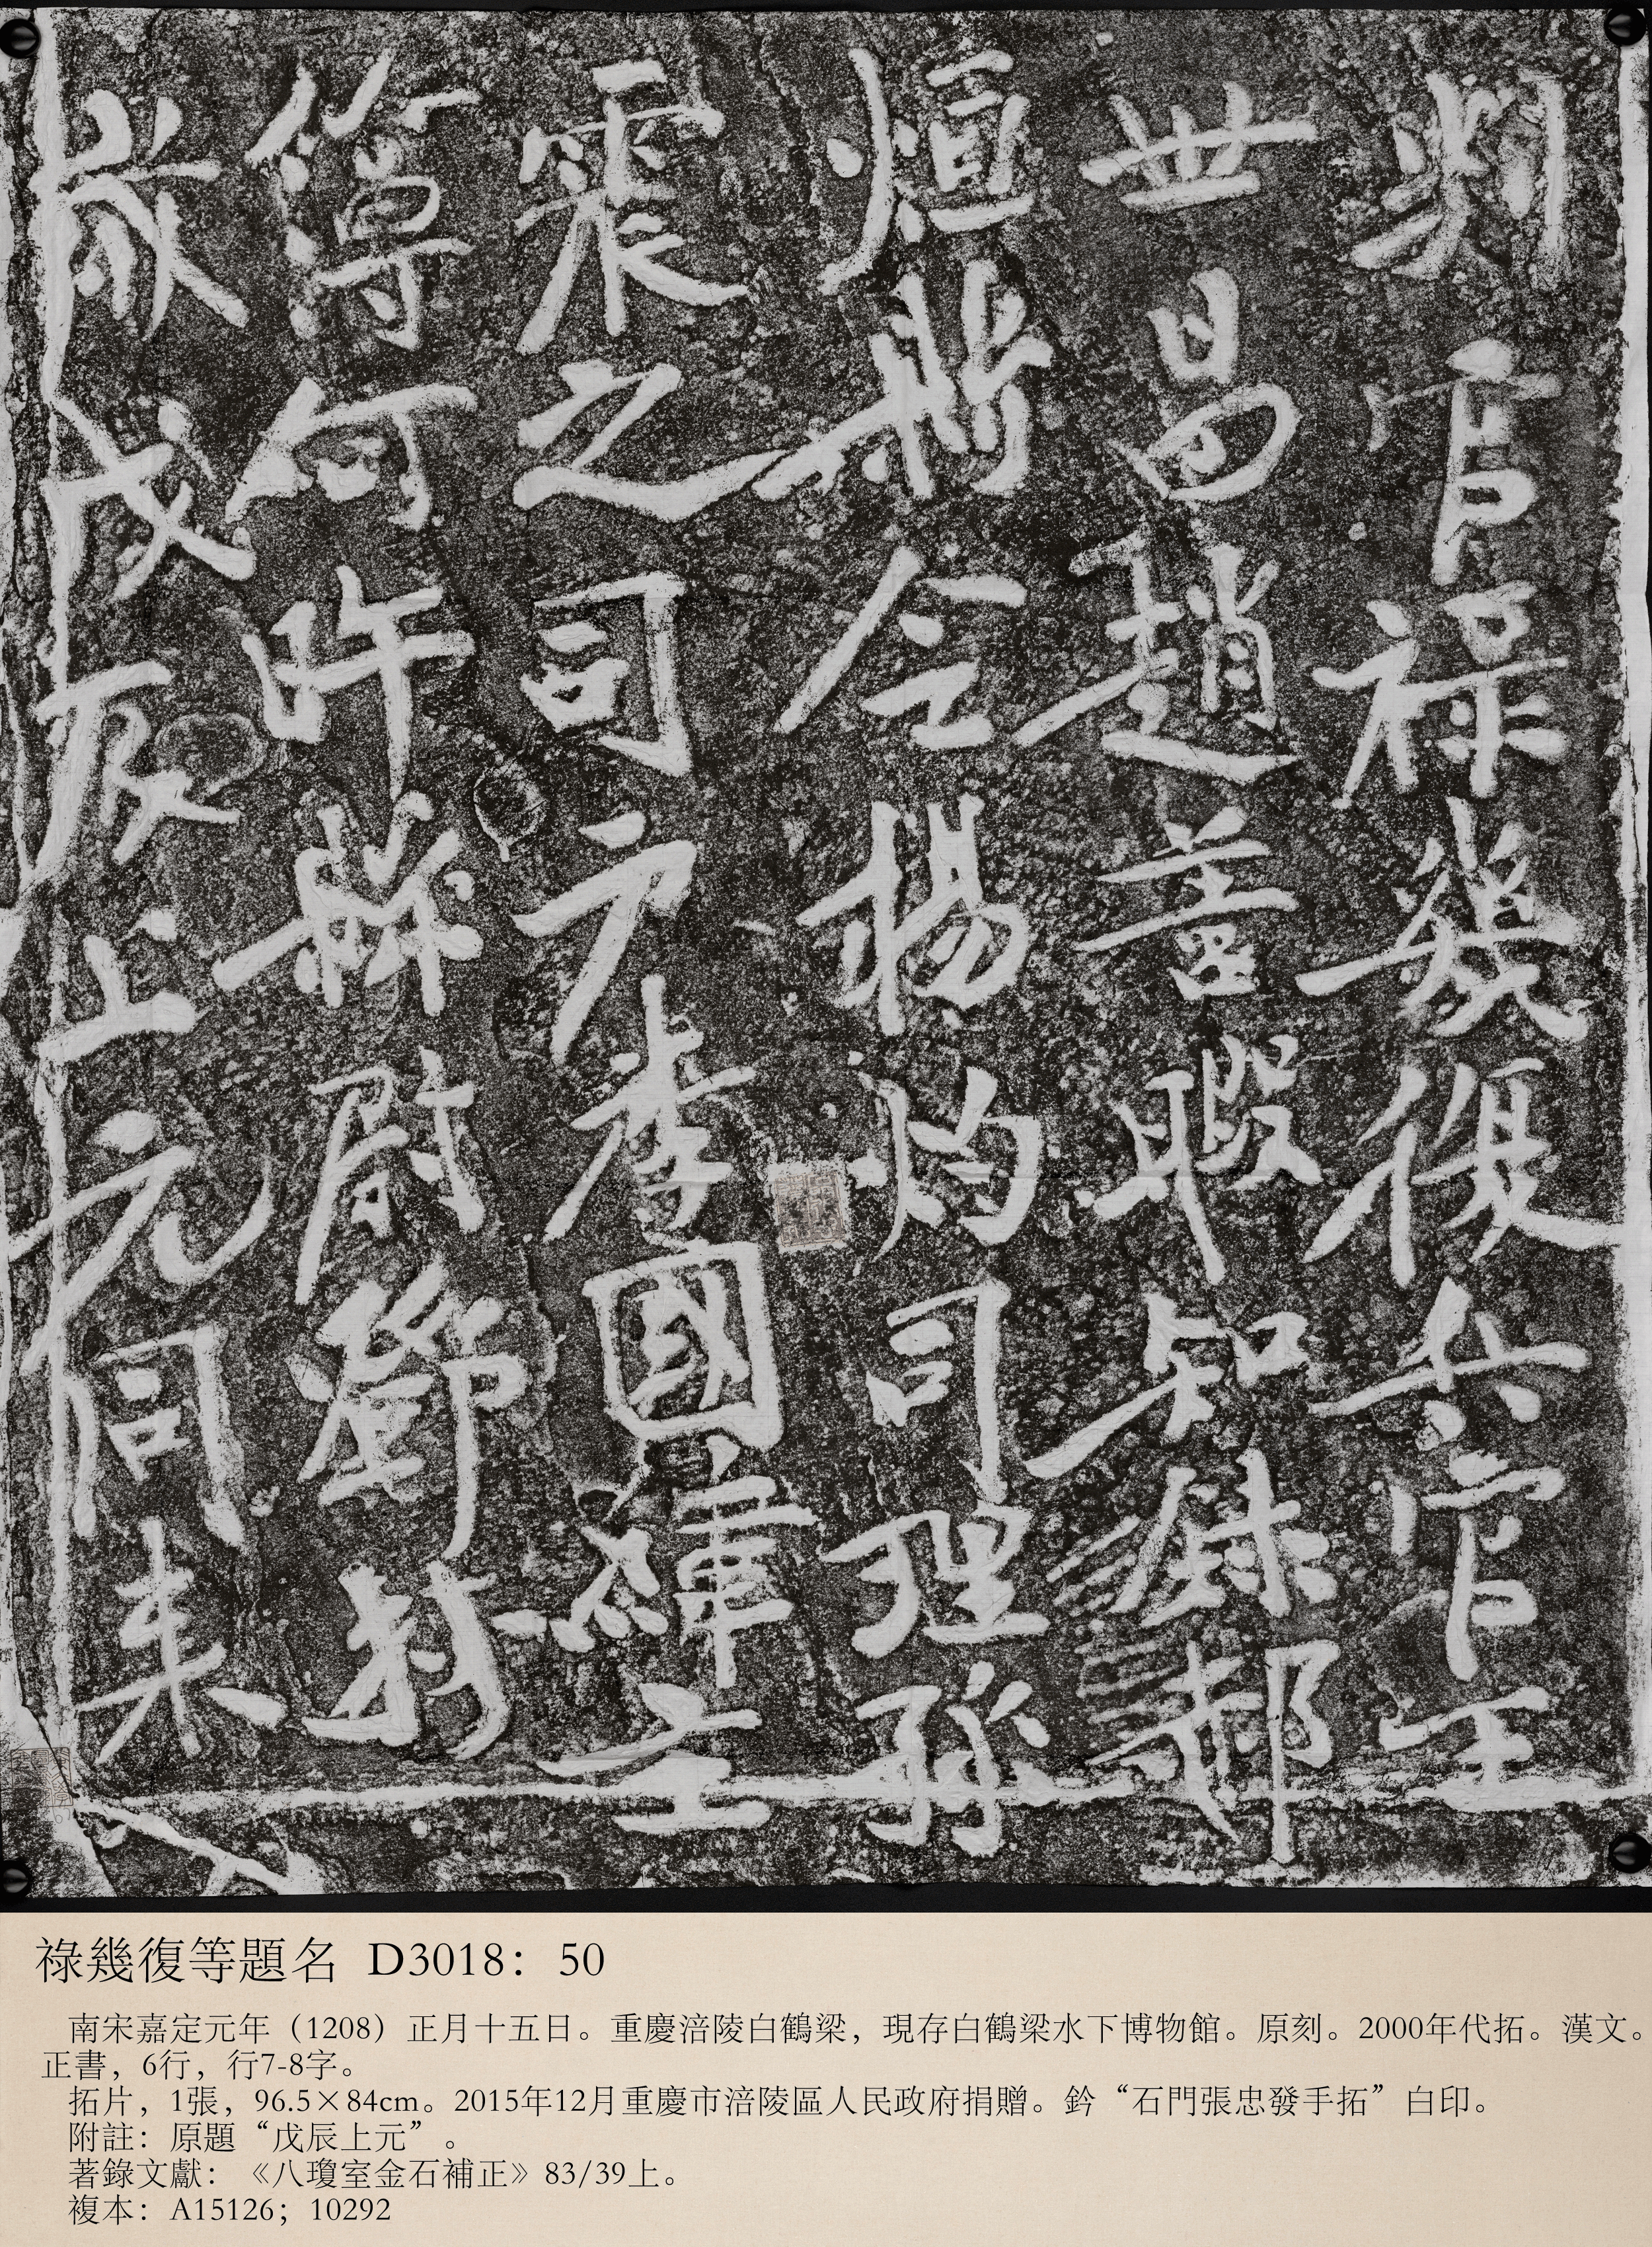 判官祿幾復兵官王
世昌趙善暇知録郝
烜掾令楊灼司理孫
震之司户李國緯主
簿何昨縣尉鄧林
戊辰上元同来
祿幾復等題名 D3018：50
南宋嘉定元年（1208）正月十五日。重慶涪陵白鶴梁，現存白鶴梁水下博物館。原刻。2000年代拓。漢文。
正書，6行，行7-8字。
拓片，1張，96.5×84cm。2015年12月重慶市涪陵區人民政府捐贈。鈐“石門張忠發手拓”白印。
附註：原題“戊辰上元”。
著錄文獻：《八瓊室金石補正》83/39上。
複本：A15126；10292